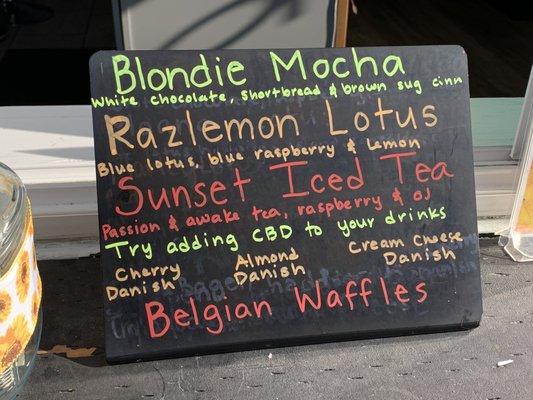 Blondie Mocha
White chocolate, shortbread & brown sug cinn
Razlemon Lotus
Blue lotus, blue raspberry & lemon
Sunset Iced Tea
Passion & awake tea, raspberry & OJ
Try adding CBD to your drinks
Cherry Danish
Almond Danish
Cream Cheese Danish
Belgian Waffles